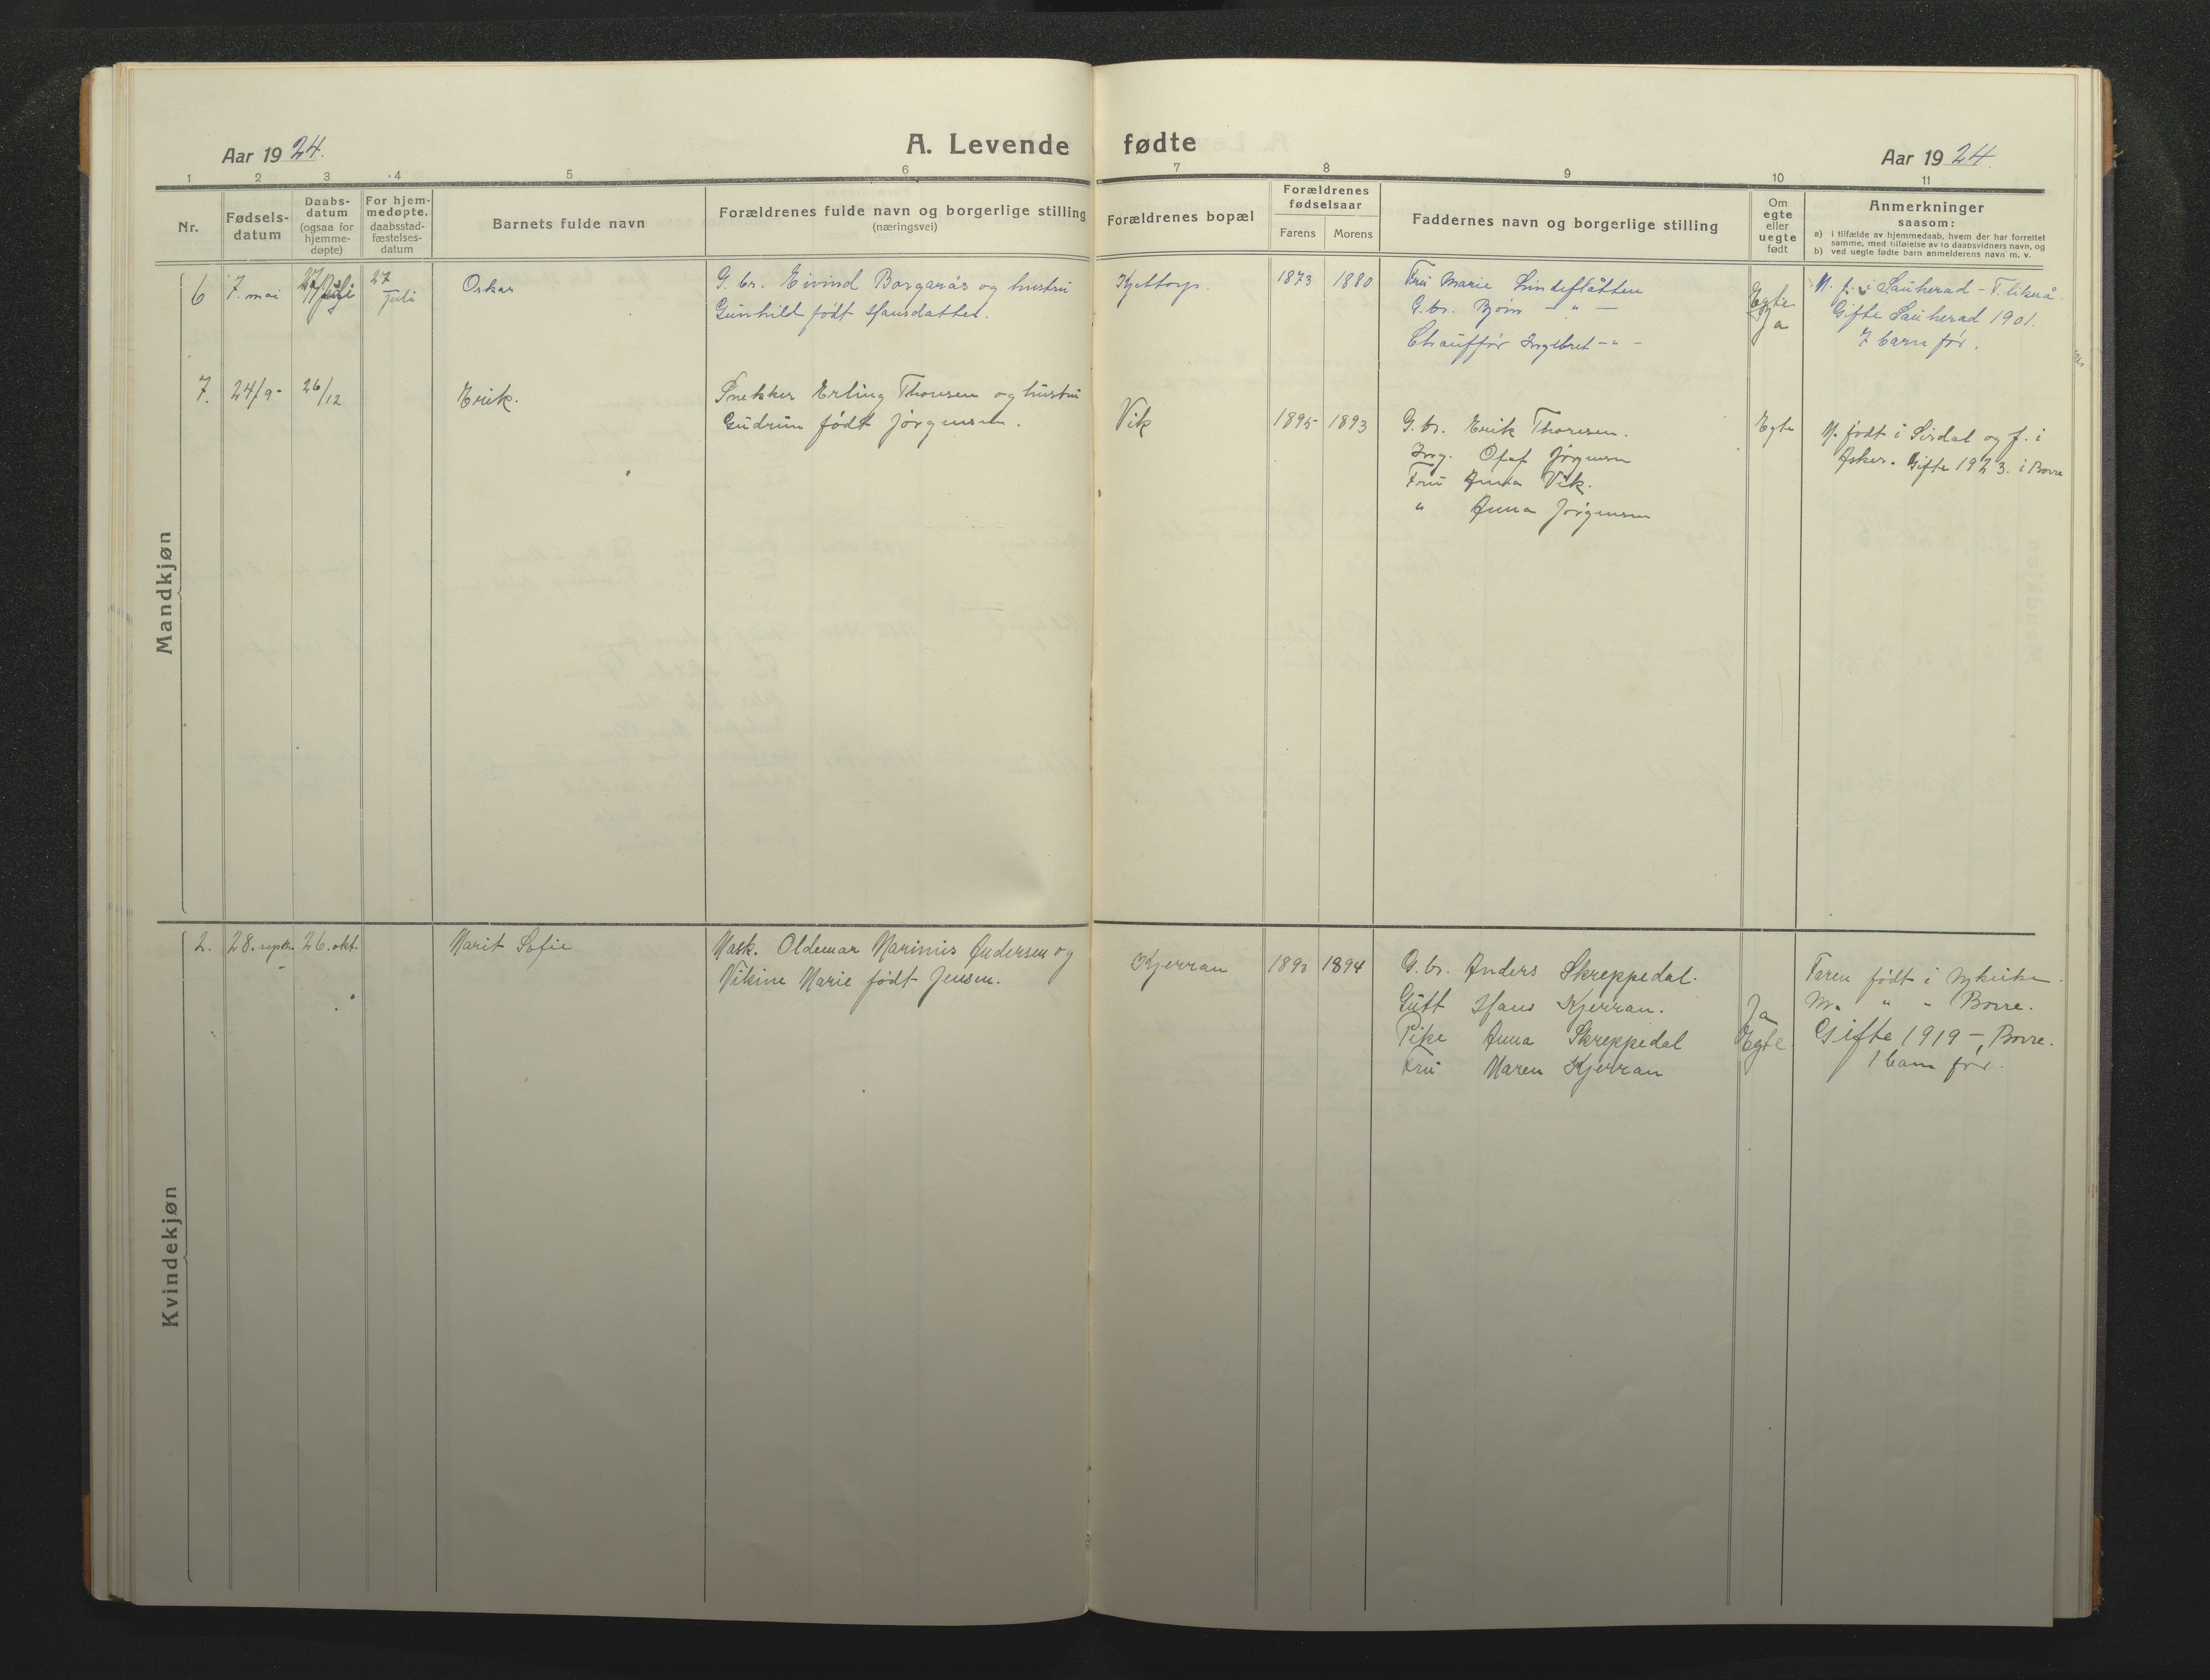 Aar 1924.
A. Levende fødte
Aar 1924
1 2 3 4 5 6 7 8 9 10 11
Nr.
Fødsels-
datum
Daabs-
datum
(ogsaa for
hjemme-
døpte)
For hjem-
medøpte,
daabsstad-
fæstelses-
datum
Barnets fulde navn
Forældrenes fulde navn og borgerlige stilling
(næringsvei)
Forældrenes bopæl
Forældrenes
fødselsaar
Farens Morens
Faddernes navn og borgerlige stilling
Om
egte
eller
uegte
født
Anmerkninger
saasom:
a) i tilfælde av hjemmedaab, hvem der har forrettet
samme, med tilføielse av to daabsvidners navn, og
b) ved uegte fødte barn anmelderens navn m. v.
Mandkjøn
6 7. mai
27
juli
Oskar
G.br. Eivind Borgarås og hustru
Gunhild født Hansdatter.
Kjettorp.
1873 1880
Fru Marie Lindeflåtten
G.br. Bjørn - " -
Chauffør Ingebret - " -
Egte
Ja
M. f. i Sauherad -
Gifte Sauherad 1901.
7 barn før.
7. 24/9- 26/12
Erik.
Snekker Erling Thoresen og hustru
Gudrun født Jørgensen.
Vik
1895 1893
G.br. Erik Thoresen.
Ing. Olaf Jørgensen
Fru Anna Vik.
" Anna Jørgensen
Egte
M. født i Sirdal og f. i
Asker. Gifte 1923. i Borre
Kvindekjøn
2. 28. septbr. 26. okt.
Marit Sofie
Mask. Oldemar Marinius Andersen og
Vikine Marie født Jensen.
Kjerran
1893 1894
G.br. Anders Skreppedal.
Gutt Hans Kjerran.
Pike Anna Skreppedal
Fru Maren Kjerran
Ja
Egte.
Faren født i Nykirke.
M. " " Borre.
Gifte 1919 - Borre.
1 barn før.